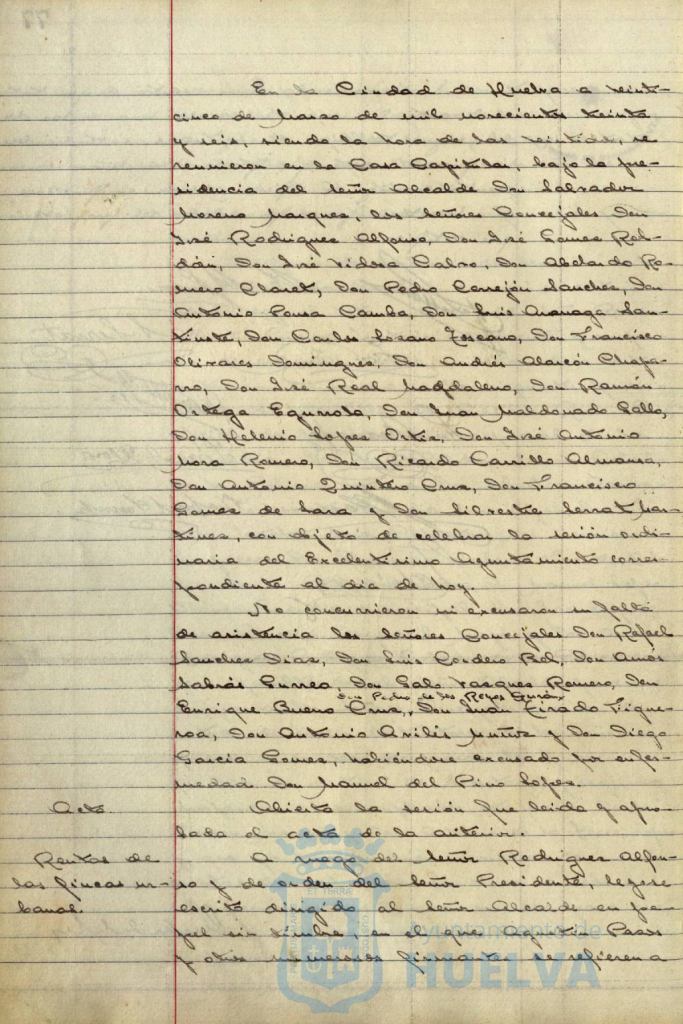 77
En la Ciudad de Huelva a veinti-
cinco de Marzo de mil novecientos treinta
y seis, siendo la hora de las veintidós, se
reunieron en la Casa Capitular, bajo la pre-
sidencia del Señor Alcalde Don Salvador
Moreno Marquez, los Señores Concejales Don
José Rodriguez Alfonso, Don José Gomez Rol-
dán, Don José Vidosa Calvo, Don Abelardo Ro-
mero Claret, Don Pedro Cerrejón Sanchez, Don
Antonio Pousa Camba, Don Luis Aranaga San-
tiuste, Don Carlos Lozano Toscano, Don Francisco
Olivares Dominguez, Don Andrés Alarcón Chapa-
rro, Don José Real Magdaleno, Don Ramón
Ortega Egurrola, Don Juan Maldonado Gallo,
Don Helenio Lopez Ortiz, Don José Antonio
Mora Romero, Don Ricardo Carrillo Almansa,
Don Antonio Quintero Cruz, Don Francisco
Gomez de Lara y Don Silvestre Serrat Mar-
tinez, con objeto de celebrar la sesión ordi-
naria del Excelentisimo Ayuntamiento corres-
pondiente al dia de hoy.
No concurrieron ni excusaron su falta
de asistencia los Señores Concejales Don Rafael
Sanchez Diaz, Don Luis Cordero Bel, Don Amós
Sabrás Gurrea, Don Galo Vazquez Romero, Don
Don Pedro de los Reyes Durán,
Enrique Bueno Cruz, Don Juan Tirado Figue-
roa, Don Antonio Avilés Muñoz y Don Diego
Garcia Gomez, habiéndose excusado por enfer-
medad Don Manuel del Pino Lopez.
Acta Abierta la sesión fue leida y apro-
bada el acta de la anterior.
Rentas de A ruego del Señor Rodriguez Alfon-
las fincas ur- so y de orden del Señor Presidente, leyose
banas. escrito dirigido al Señor Alcalde en pa-
pel sin timbre, en el que Agustin Pazos
y otros numerosos firmantes se refieren a
Ayuntamiento de
HUELVA